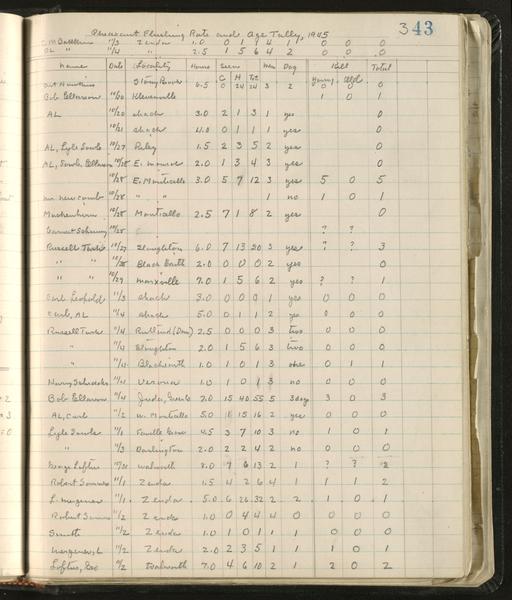 343
Pheasant Flushing Rate and Age Tally, 1945
11/3 Zenda 1.0 0 1 1 4 1 0 0 0
AL " 11/4 " 2.5 1 5 6 4 2 0 0 0
Name Date Locality Hours Seen Men Dog Kill Total
C H Tot young old
Hawkins 6.5 0 24 24 3 2 0 0 0
Bob Ellarson 10/20 Klevenville 1 0 1
AL 10/20 shack 3.0 2 1 3 1 yes 0
10/21 shack 4.0 0 1 1 1 yes 0
AL, Lyle Sowls 10/27 Riley 1.5 2 3 5 2 yes 0
AL, Sowls, Ellarson 10/28 E. Monroe 2.0 1 3 4 3 yes 0
10/28 E. Monticello 3.0 5 7 12 3 yes 5 0 5
Newcomb 10/28 " " 1 no 1 0 1
10/28 Monticello 2.5 7 1 8 2 yes 0
10/28 ? ?
Russell 10/27 Stoughton 6.0 7 13 20 3 yes ? ? 3
" " 10/28 Black Earth 2.0 0 0 0 2 yes 0
" " 10/29 7.0 1 5 6 2 yes ? ? 1
Carl Leopold 11/3 shack 3.0 0 0 0 1 yes 0 0 0
Carl, AL 11/4 shack 5.0 0 1 1 2 yes 0 0 0
Russell 11/4 Rutland (Dane) 2.5 0 0 0 3 two 0 0 0
" 11/4 Stoughton 2.0 1 5 6 3 two 0 0 0
" 11/4 1.0 1 0 1 3 one 0 1 1
Harry 11/4 Verona 1.0 1 0 1 3 no 0 0 0
Bob Ellarson 11/4 Juda, 7.0 15 40 55 5 3 dogs 3 0 3
AL, Carl 11/2 W. Monticello 5.0 1 15 16 2 yes 0 0 0
Lyle Sowls 11/1 Faville Grove 4.5 3 7 10 3 no 1 0 1
" 11/3 Darlington 2.0 2 2 4 2 no 0 0 0
George Loftus 10/31 Walworth 8.0 7 6 13 2 1 ? ? 2
Robert 11/1 Zenda 1.5 4 2 6 4 1 1 1 2
L. 11/1 Zenda 5.0 6 26 32 2 2 1 0 1
Robert 11/2 Zenda 1.0 0 4 4 4 0 0 0 0
Smith 11/2 Zenda 1.0 1 0 1 1 1 0 0 0
11/2 Zenda 2.0 2 3 5 1 1 1 0 1
Loftus, Geo 11/2 Walworth 7.0 4 6 10 2 1 2 0 2